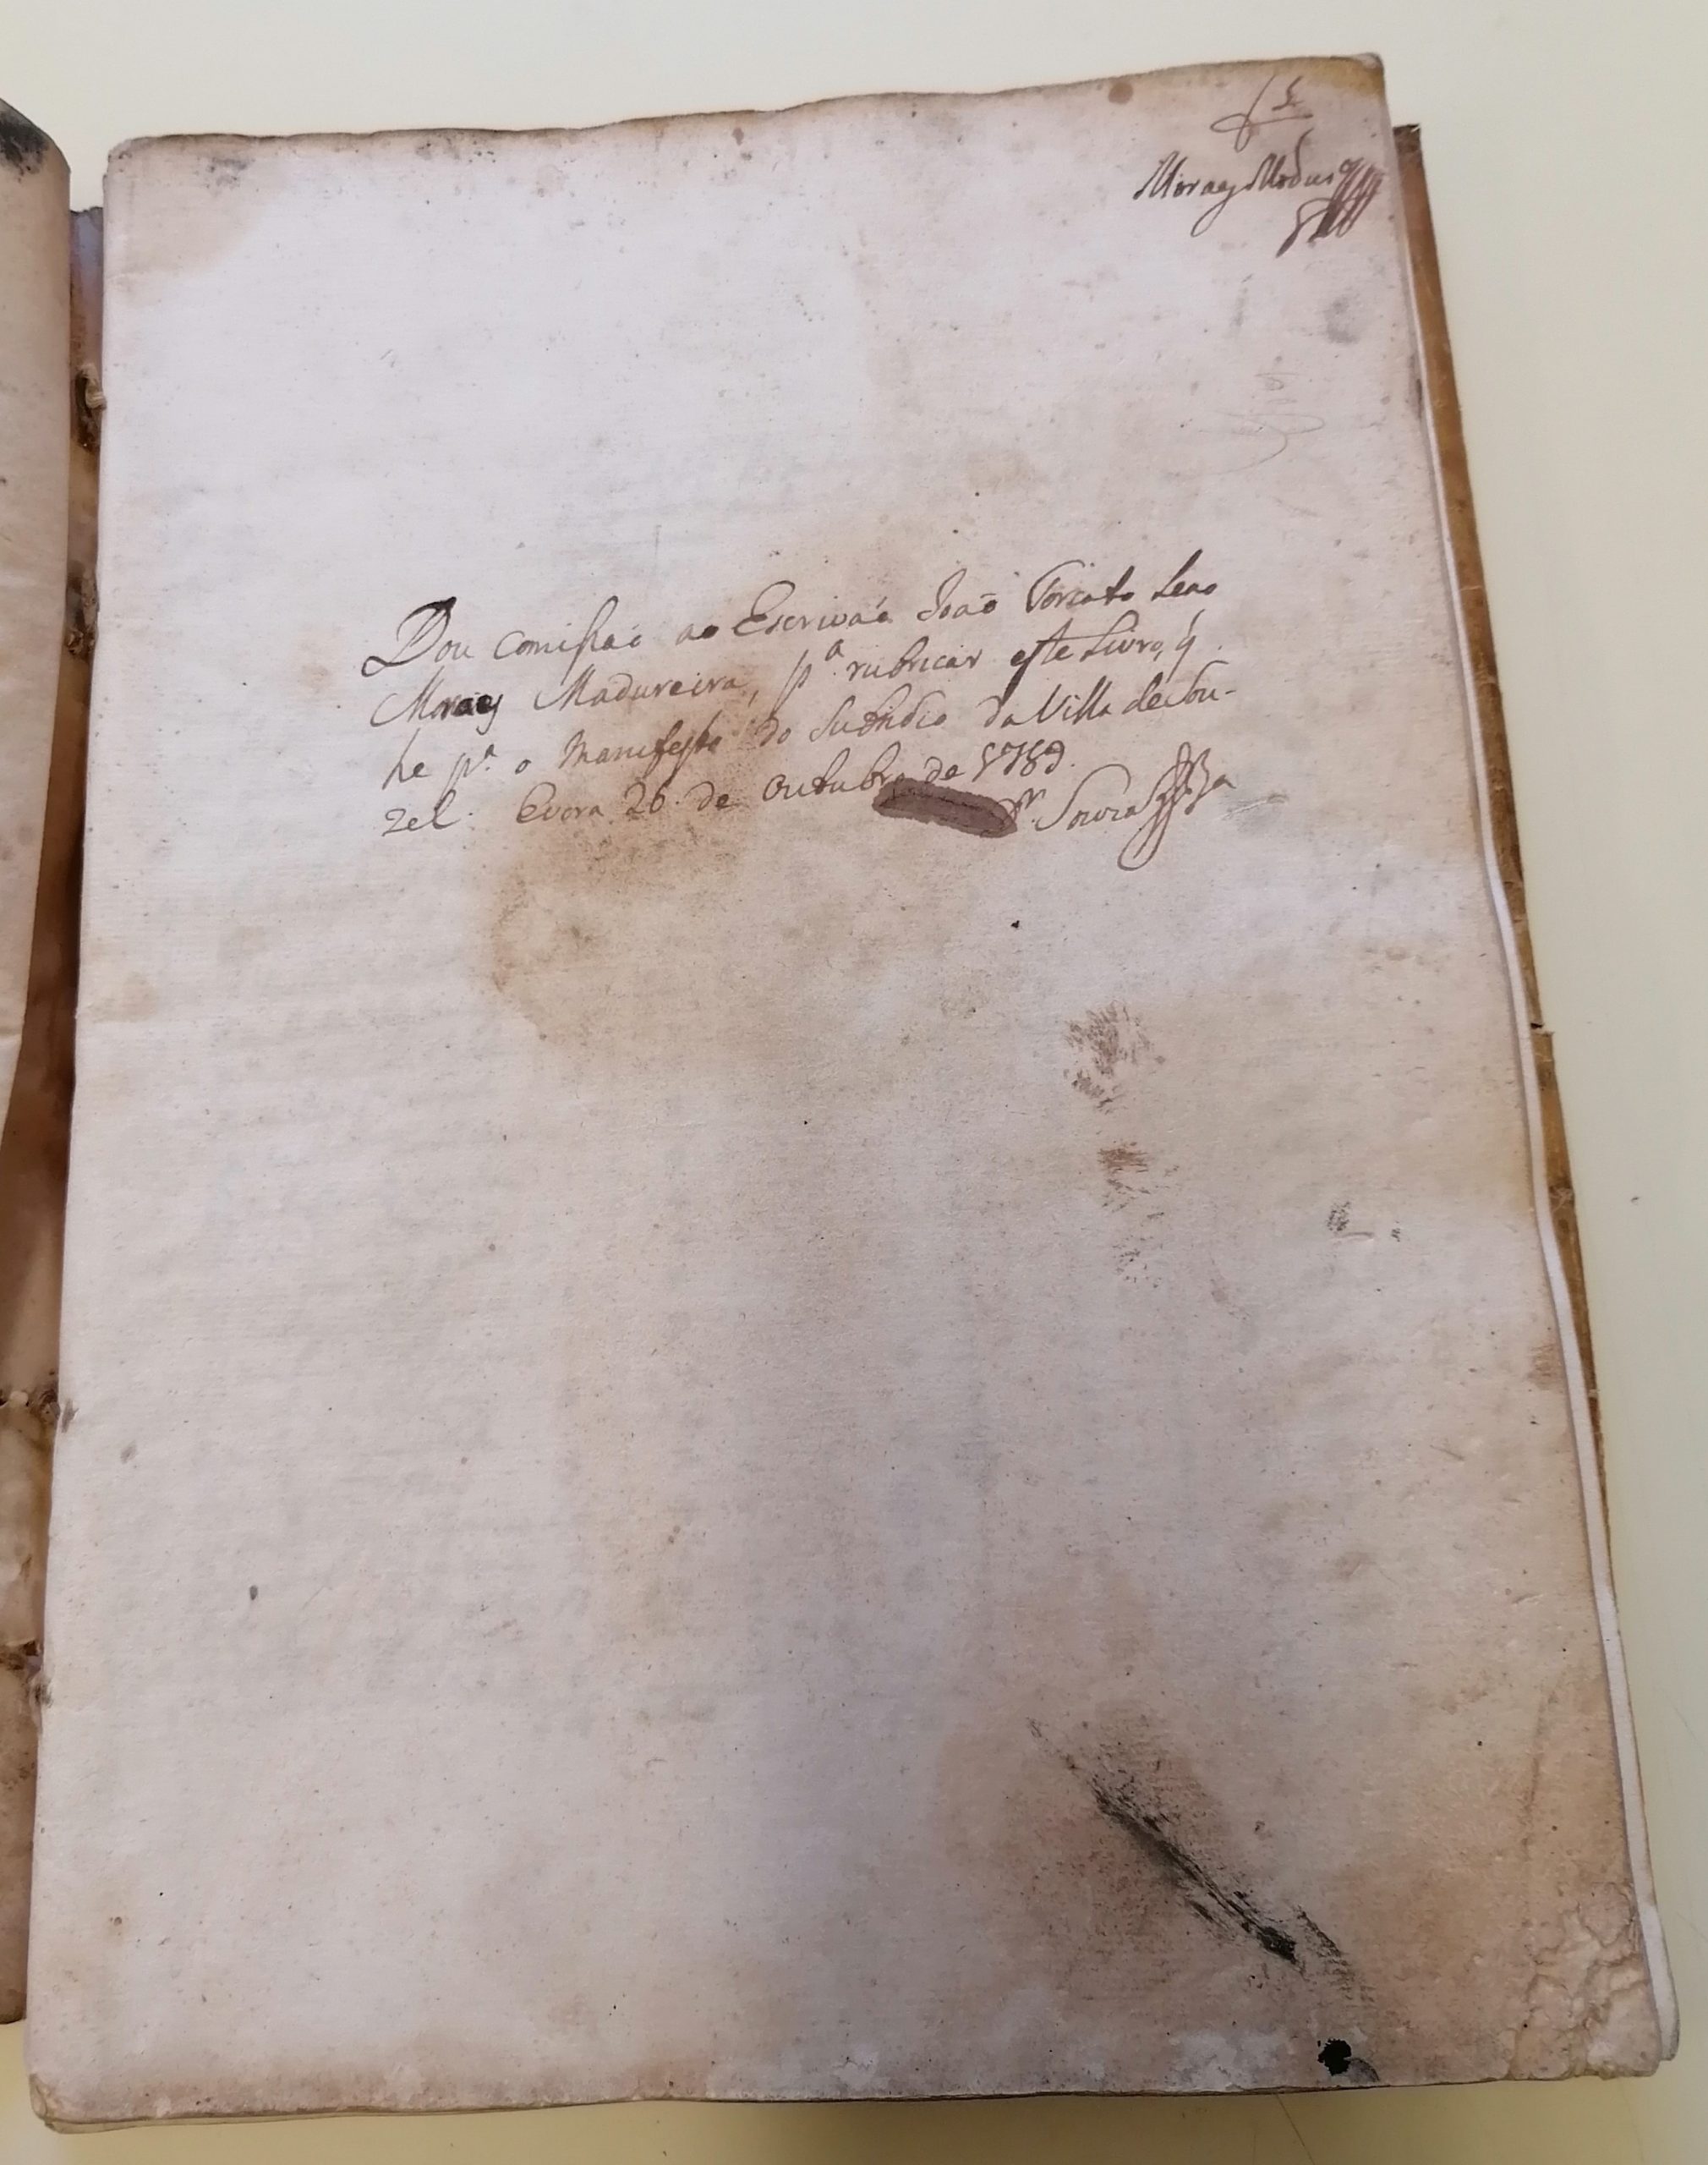 f 1
Moraes Madur.ª
Dou comissaõ ao Escrivaõ Joaõ Torcato Leao
Moraes Madureira, p.ª rubricar este Livro, q̃
he p.ª o Manifesto do Subsidio da Villa de Sou-
zel. Evora 26 de Outubro de 1789.
Souza